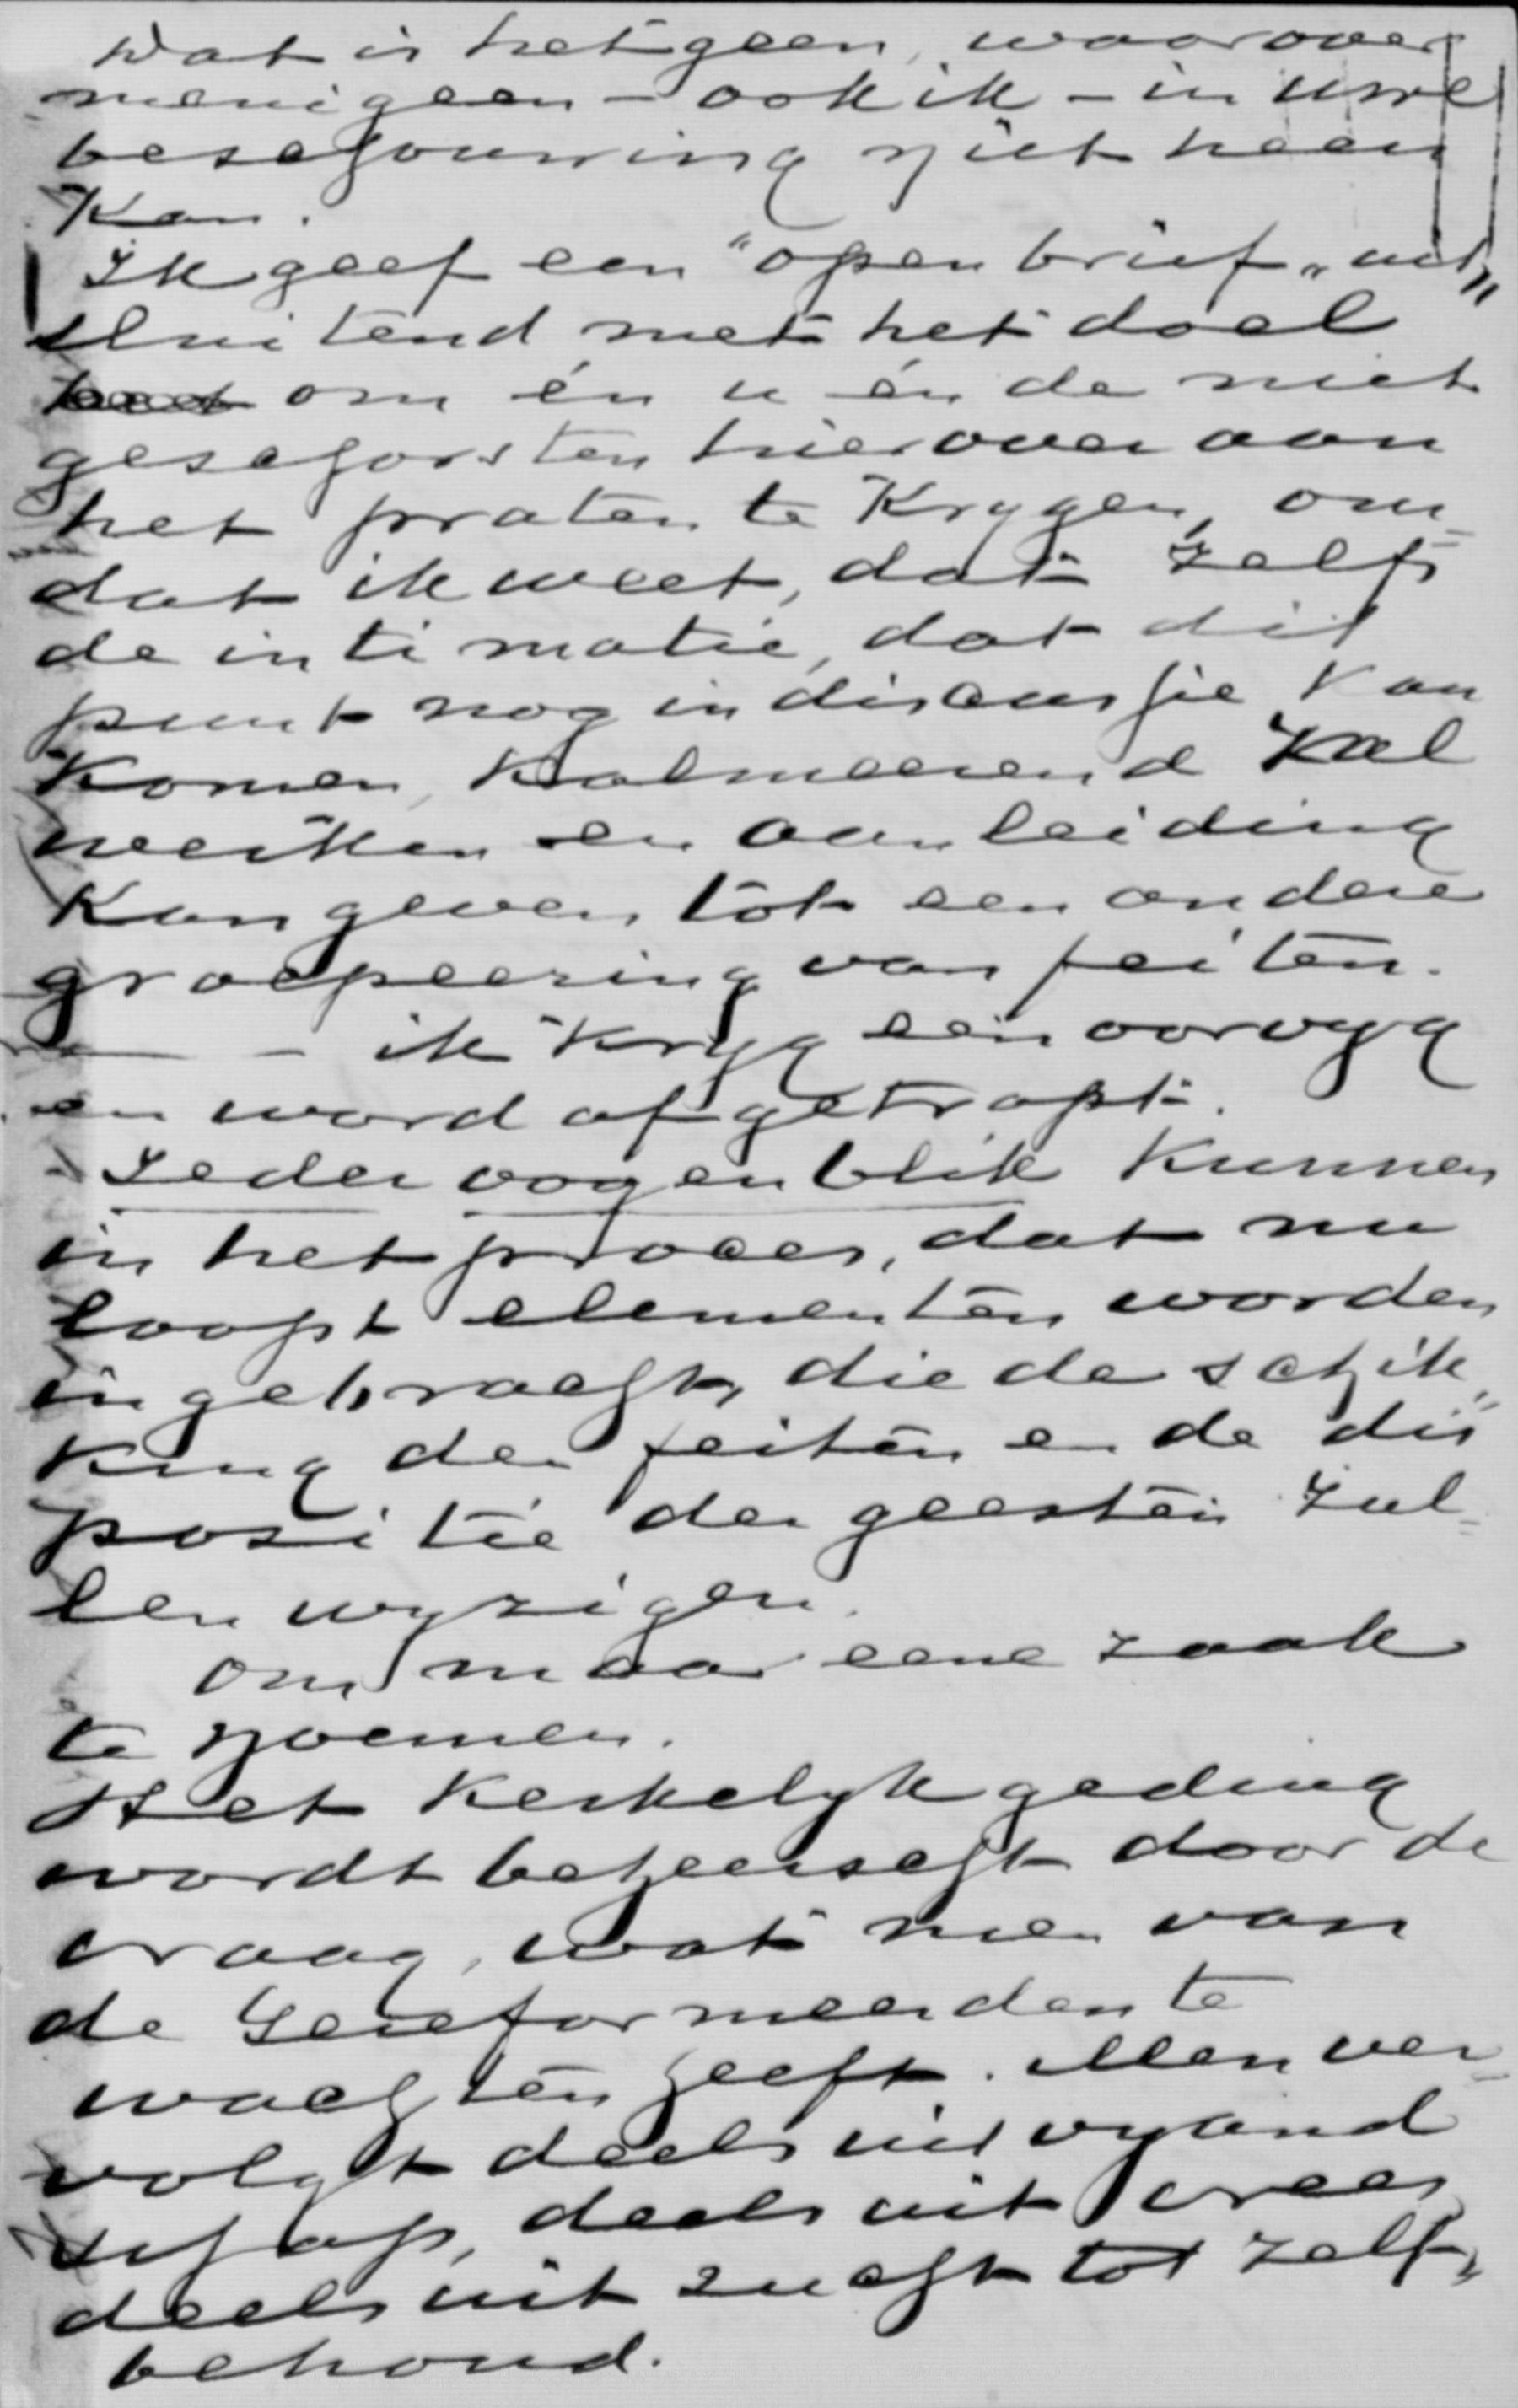 Dat is hetgeen, waarover
menigeen – ook ik – in uwe
beschouwing niet heen
kan.
Ik geef een "open brief„ uit„
sluitend met het doel
om én u én de niet
geschorsten hierover aan
het praten te krygen, om-
dat ik weet, dat zelfs
de intimatie, dat dit
punt nog in discussie kan
komen, kalmeerend zal
werken en aanleiding
kan geven tot een andere
groepeering van feiten.
– ik kryg een oorvyg
en word afgetrapt.
Ieder oogenblik kunnen
in het proces, dat nu
loopt elementen worden
ingebracht, die de schik„
king der feiten en de dis
positie der geesten zul-
len wyzigen.
om maar eene zaak
te noemen.
Het kerkelyk geding
wordt beheerscht door de
vraag, wat men van
de Gereformeerden te
wachten heeft. Men ver-
volgt deels uit vyand
schap, deels uit vrees
deels uit zucht tot zelf-
behoud.